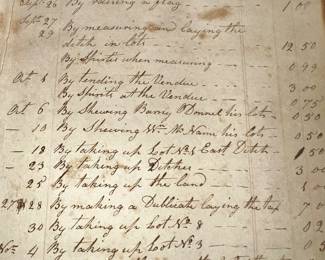 Sept 26 By raising a flag - - - 1 00
Sept 27 By measuring and laying the
29 ditch in lots - - - - 12 50
By Spirits when measuring - - 0 99
Oct 1 By tending the Vendue - - 3 00
By Spirits at the Vendue - - 0 75
Oct 6 By Shewing Barny O Donnel his lots - 0 50
— 10 By Shewing Wm McNamee his lots - 0 50
— 18 By taking up Lot No 1 East Ditch - 1 50
23 By taking up Ditcher - - 3
25 By taking up the land - - 1
27 & 28 By making a Dublicate laying the tax 7 0
30 By taking up Lot No 8 - - 0
Nov 4 By taking up Lot No 3 - - 0